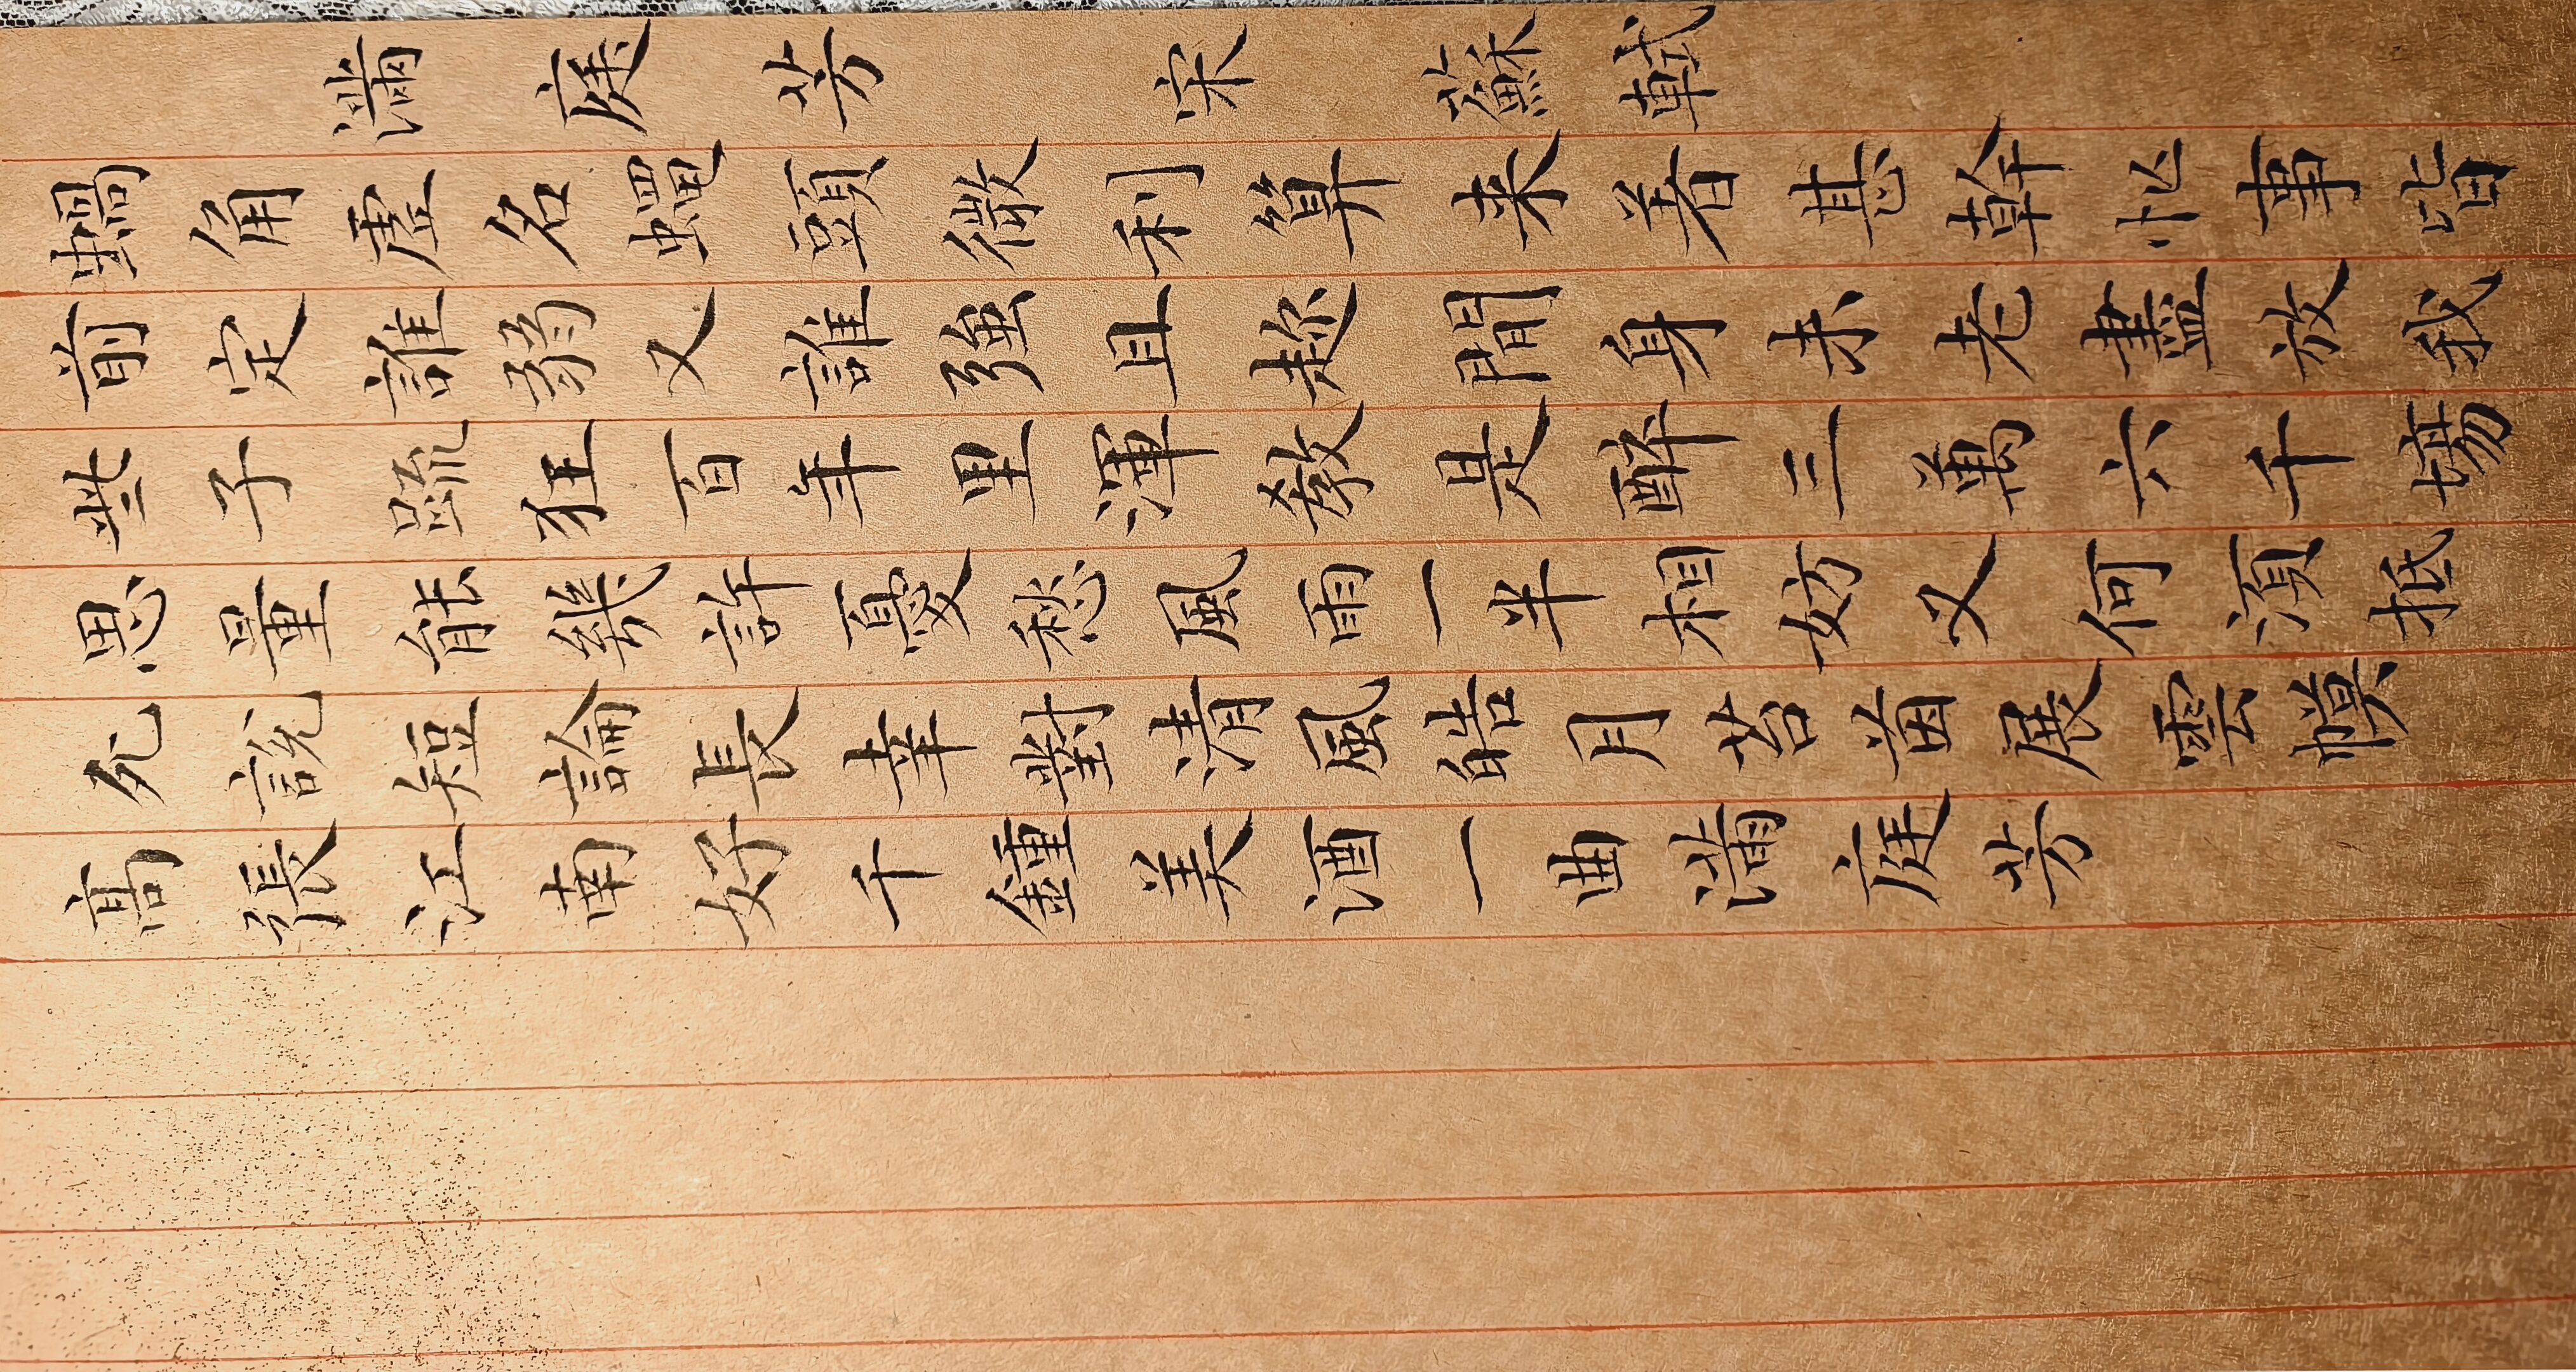 滿庭芳 宋 蘇軾
蝸角虛名蠅頭微利算来着甚幹忙事皆
前定誰弱又誰強且趂閒身未老盡放我
些子疏狂百年里渾教是醉三萬六千場
思量能幾許憂愁風雨一半相妨又何須抵
死說短論長幸對清風皓月苔茵展雲幙
高張江南好千鍾美酒一曲滿庭芳